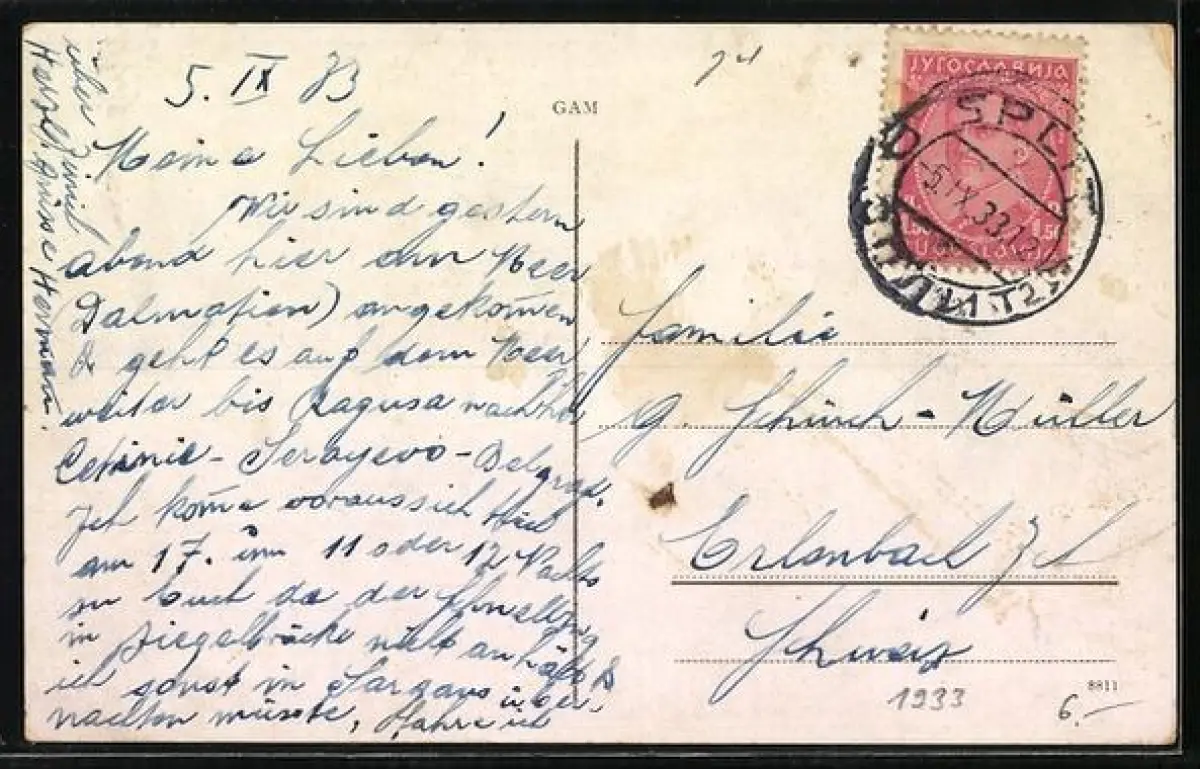 5. IX 33
Meine Lieben!
Wir sind gestern
abend hier am Meer
Dalmatien) angekom̄en
& geht es auf dem Meer
weiter bis Ragusa nachher
Cetinie - Serayevo - Belgrad.
Ich kom̄e voraussichtlich
am 17. um 11 oder 12 Nachts
zu Euch da der Schnellzug
in Ziegelbrücke nicht anhält &
ich sonst in Sargans über-
nachten müsste, fahre ich
über Zürich
Herzl. Grüsse Hermann.
GAM
ЈУГОСЛАВИЈА
1.50
SPLIT
5.IX.33.12
Familie
G. Schürch-Müller
Erlenbach Zch
Schweiz
8811
1933
6.-